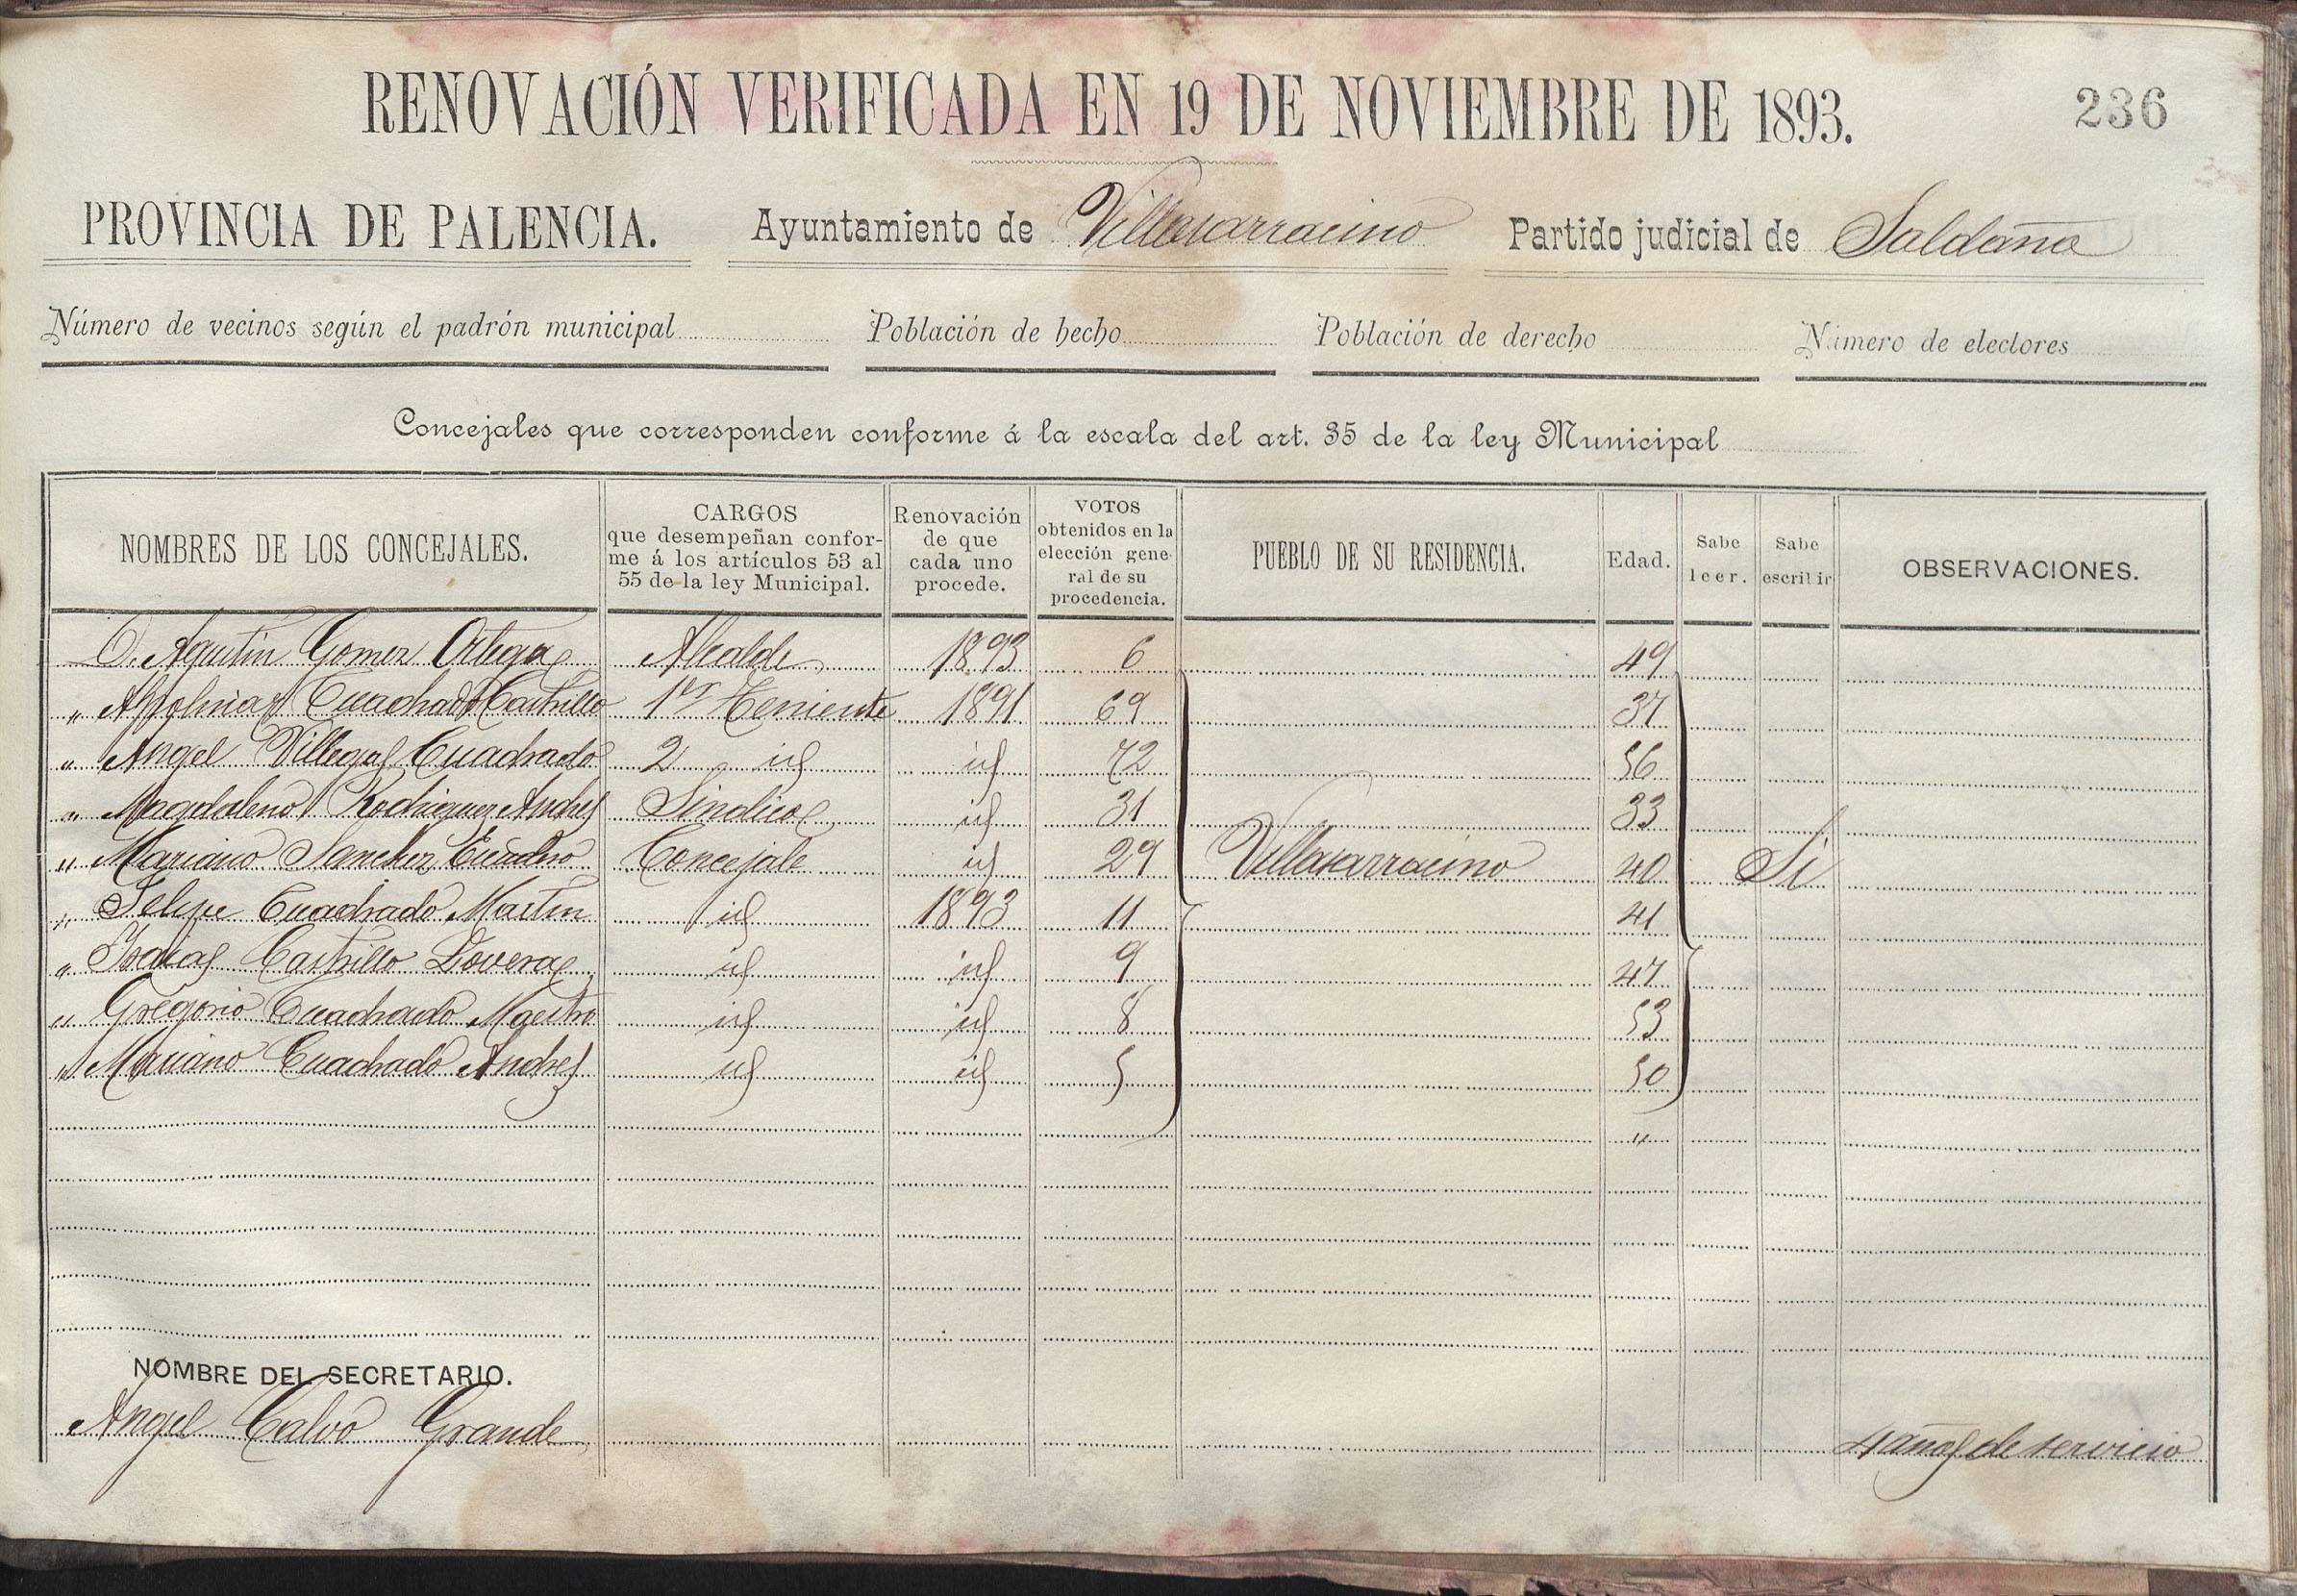 RENOVACIÓN VERIFICADA EN 19 DE NOVIEMBRE DE 1893.
236
PROVINCIA DE PALENCIA. Ayuntamiento de Villasarracino Partido judicial de Saldaña
Número de vecinos según el padrón municipal Población de hecho Población de derecho Número de electores
Concejales que corresponden conforme á la escala del art. 35 de la ley Municipal
NOMBRES DE LOS CONCEJALES.
CARGOS
que desempeñan confor-
me á los artículos 53 al
55 de la ley Municipal.
Renovación
de que
cada uno
procede.
VOTOS
obtenidos en la
elección gene-
ral de su
procedencia.
PUEBLO DE SU RESIDENCIA.
Edad.
Sabe
leer.
Sabe
escribir
OBSERVACIONES.
D. Agustin Gomez Ortega Alcalde 1893 6 49
" Apolinar Cuadrado Castrillo 1er Teniente 1891 69 37
" Angel Villegas Cuadrado 2 id id 72 56
" Magdaleno Rodriguez Andres Sindico id 31 33
" Mariano Sanchez Concejale id 29 Villasarracino 40 Si
" Felipe Cuadrado Martin id 1893 11 41
" Isaias Castrillo id id 9 47
" Gregorio Cuadrado Maestro id id 8 53
" Mariano Cuadrado Andres id id 5 50
"
NOMBRE DEL SECRETARIO.
Angel Calvo Grande 4 años de servicio